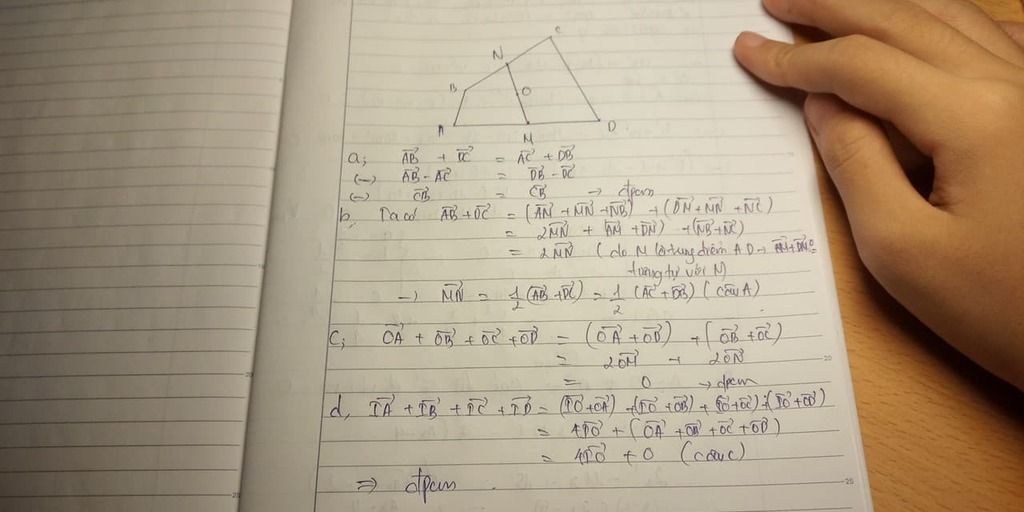 C
N
B
O
A
M
D
a; AB⃗ + DC⃗ = AC⃗ + DB⃗
(→) AB⃗ - AC⃗ = DB⃗ - DC⃗
(→) CB⃗ = CB⃗ → đpcm
b, Ta có AB⃗ + DC⃗ = (AM⃗ + MN⃗ + NB⃗) + (DM⃗ + MN⃗ + NC⃗)
= 2MN⃗ + (AM⃗ + DM⃗) + (NB⃗ + NC⃗)
= 2MN⃗ (do M là trung điểm AD → AM⃗ + DM⃗ = 0
tương tự với N)
→ MN⃗ = 1/2 (AB⃗ + DC⃗) = 1/2 (AC⃗ + DB⃗) (câu A)
C; OA⃗ + OB⃗ + OC⃗ + OD⃗ = (OA⃗ + OD⃗) + (OB⃗ + OC⃗)
= 2OM⃗ + 2ON⃗
= 0 → đpcm
d, IA⃗ + IB⃗ + IC⃗ + ID⃗ = (IO⃗ + OA⃗) + (IO⃗ + OB⃗) + (IO⃗ + OC⃗) + (IO⃗ + OD⃗)
= 4IO⃗ + (OA⃗ + OB⃗ + OC⃗ + OD⃗)
= 4IO⃗ + 0 (câu c)
⇒ đpcm.
20
25
25